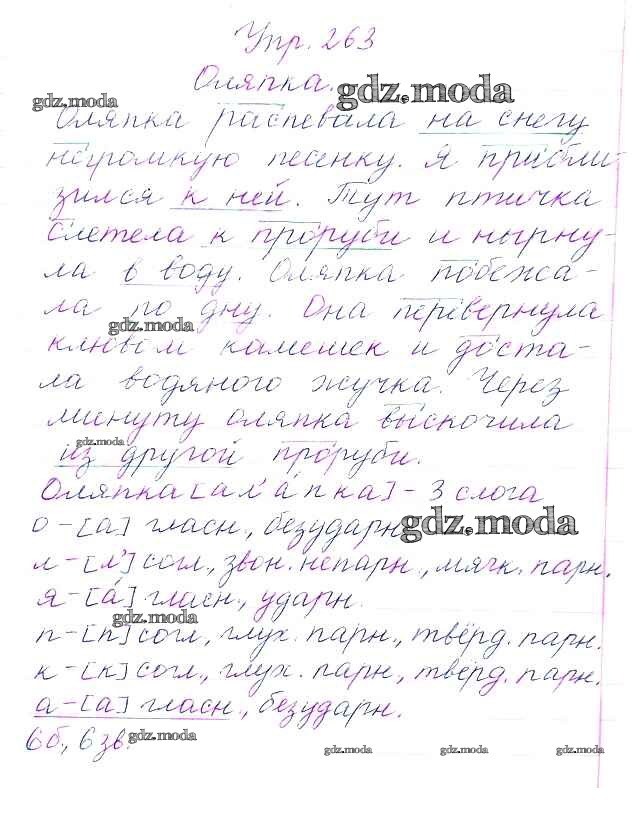 Упр. 263
Оляпка.
gdz.moda
gdz.moda
Оляпка распевала на снегу
негромкую песенку. Я прибли-
зился к ней. Тут птичка
слетела к проруби и нырну-
ла в воду. Оляпка побежа-
ла по дну. Она перевернула
gdz.moda
клювом камешек и доста-
ла водяного жучка. Через
минуту оляпка выскочила
gdz.moda
из другой проруби.
Оляпка [ал'áпка] - 3 слога
о - [а] гласн., безударн.
gdz.moda
л - [л'] согл., звон. непарн., мягк. парн.
я - [á] гласн., ударн.
gdz.moda
п - [п] согл., глух. парн., твёрд. парн.
к - [к] согл., глух. парн., твёрд. парн.
а - [а] гласн., безударн.
6б., 6 зв.
gdz.moda
gdz.moda gdz.moda gdz.moda